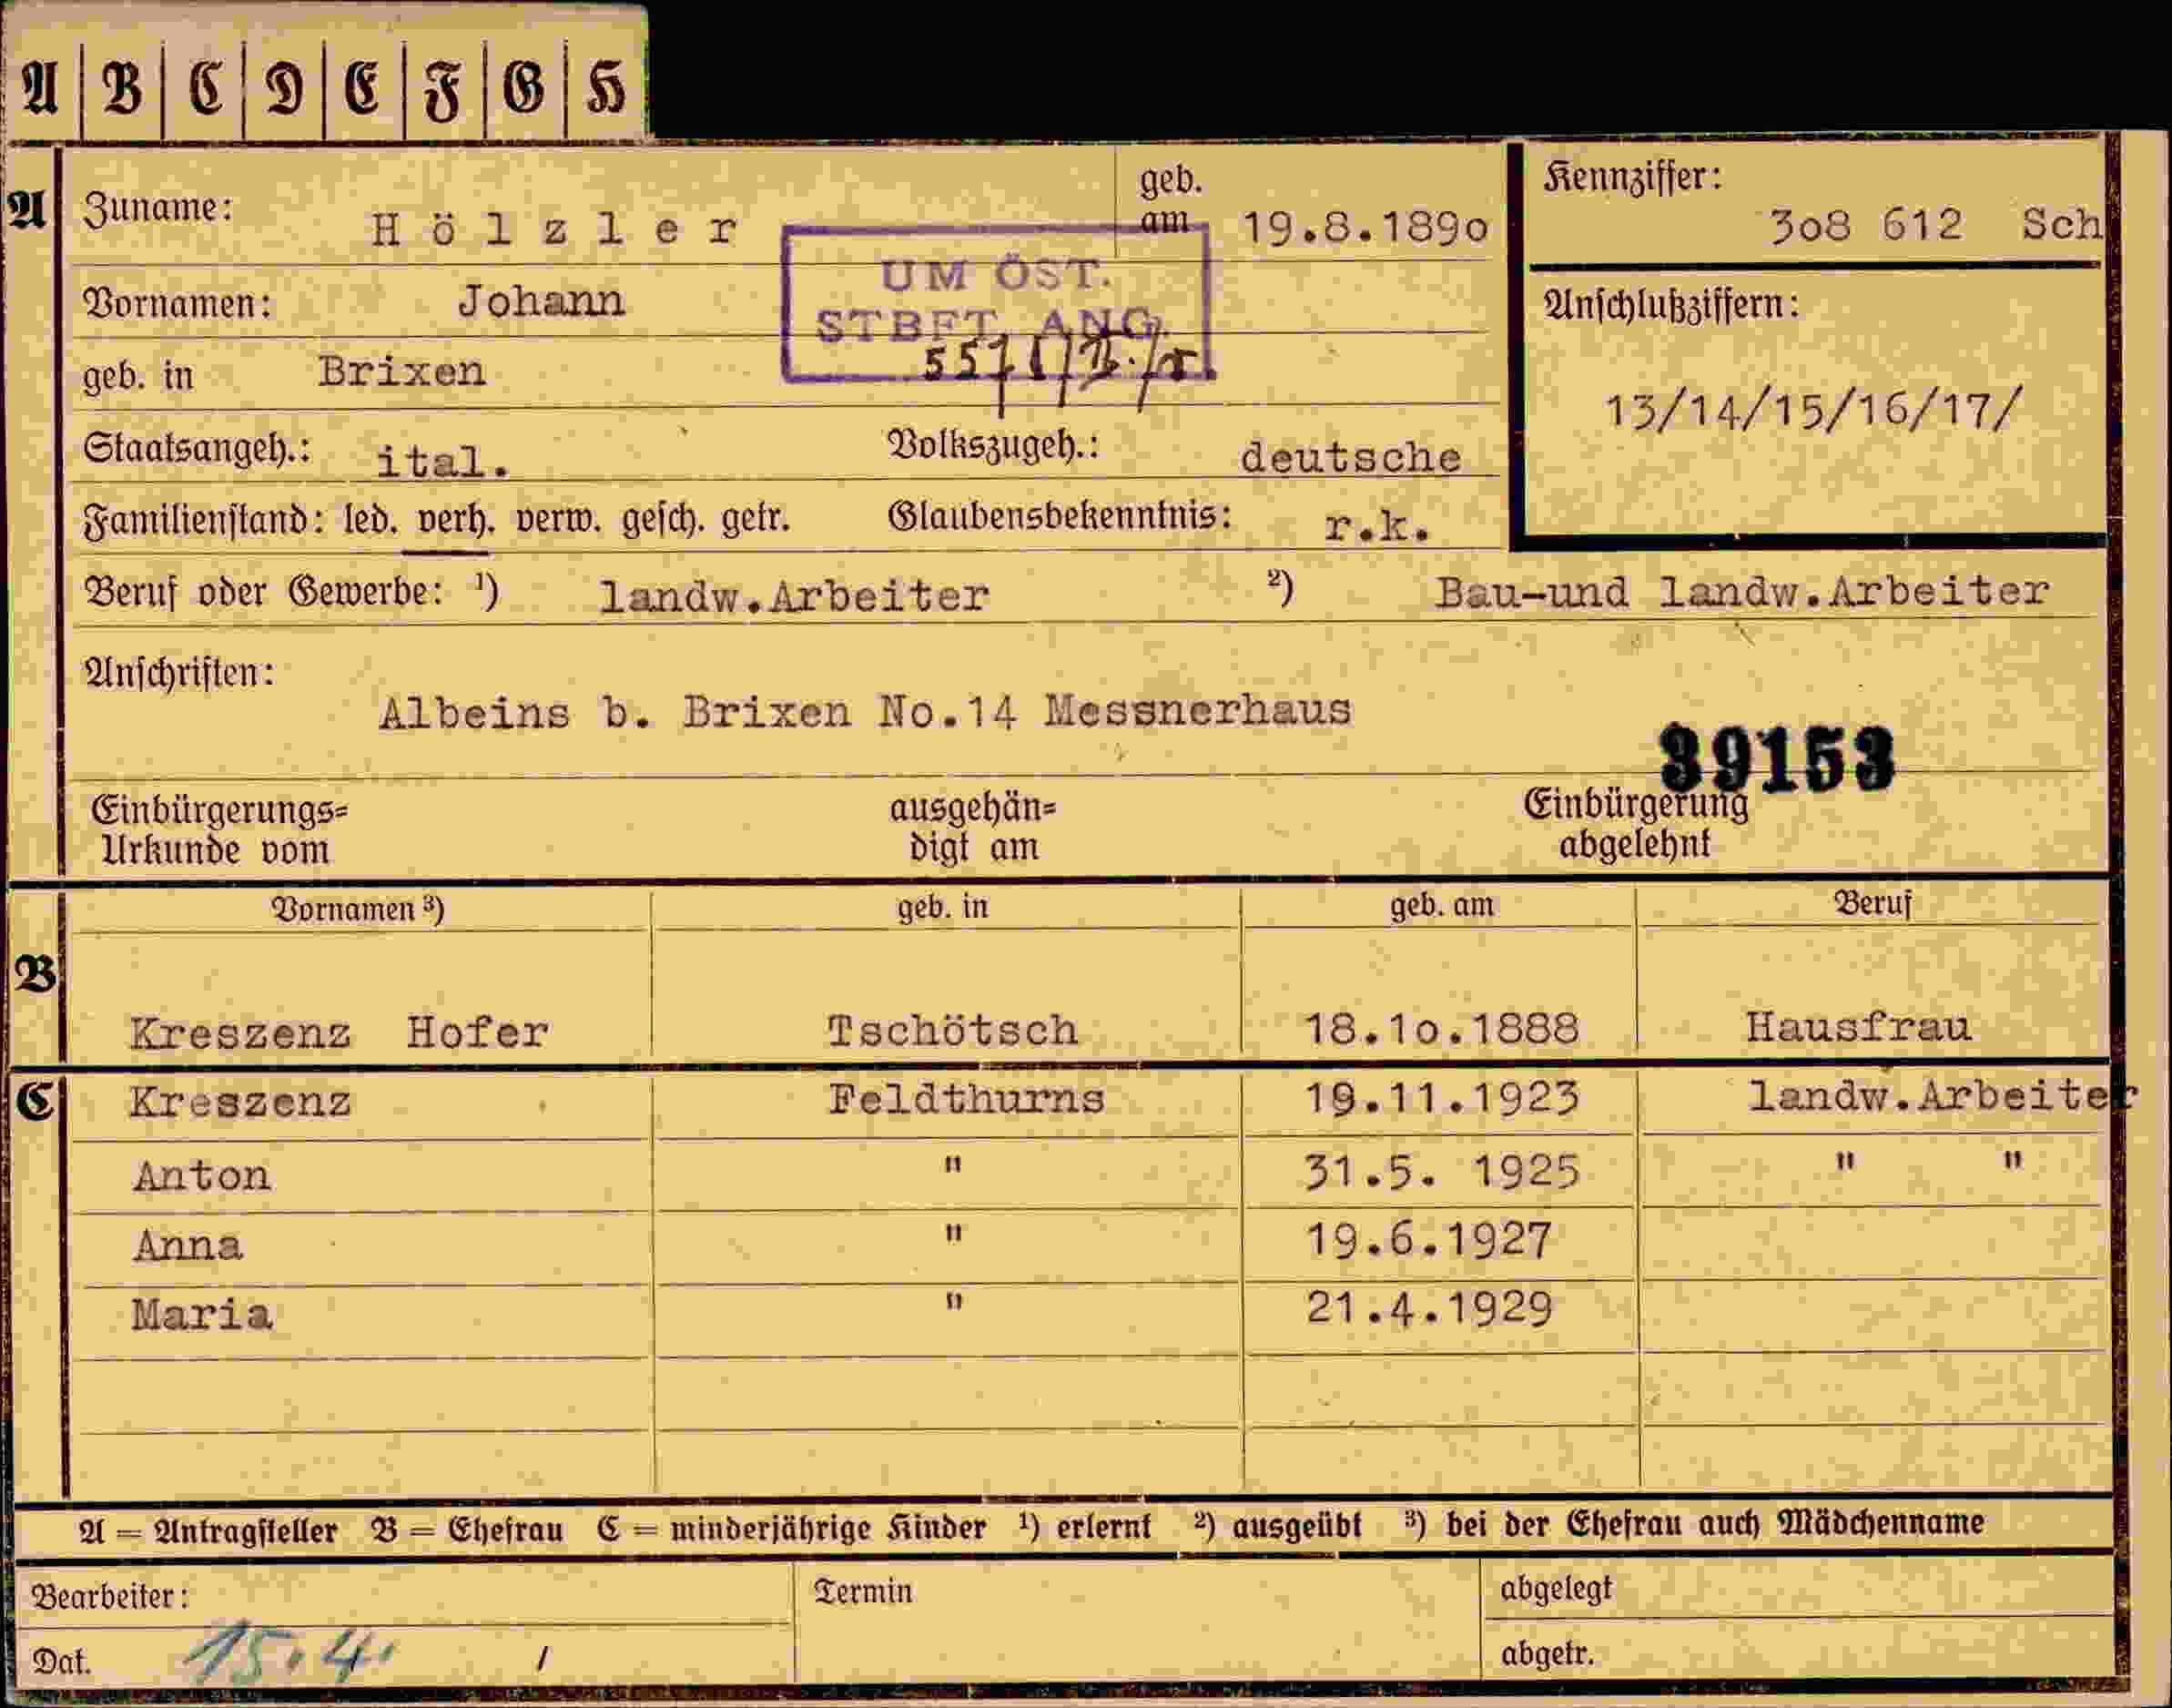 A B C D E F G H
A
Zuname: Hölzler
geb. am 19.8.189o
Kennziffer:
3o8 612 Sch
UM ÖST.
STBFT. ANG.
Vornamen: Johann
Anschlußziffern:
geb. in Brixen
13/14/15/16/17/
Staatsangeh.: ital. Volkszugeh.: deutsche
Familienstand: led. verh. verw. gesch. getr. Glaubensbekenntnis: r.k.
Beruf oder Gewerbe: ¹) landw.Arbeiter ²) Bau-und landw.Arbeiter
Anschriften:
Albeins b. Brixen No.14 Messnerhaus
39153
Einbürgerungs= ausgehän= Einbürgerung
Urkunde vom digt am abgelehnt
Vornamen ³) geb. in geb. am Beruf
B
Kreszenz Hofer Tschötsch 18.1o.1888 Hausfrau
C Kreszenz Feldthurns 19.11.1923 landw.Arbeiter
Anton " 31.5. 1925 " "
Anna " 19.6.1927
Maria " 21.4.1929
A = Antragsteller B = Ehefrau C = minderjährige Kinder ¹) erlernt ²) ausgeübt ³) bei der Ehefrau auch Mädchenname
Bearbeiter: Termin abgelegt
Dat. 15.4. / abgetr.